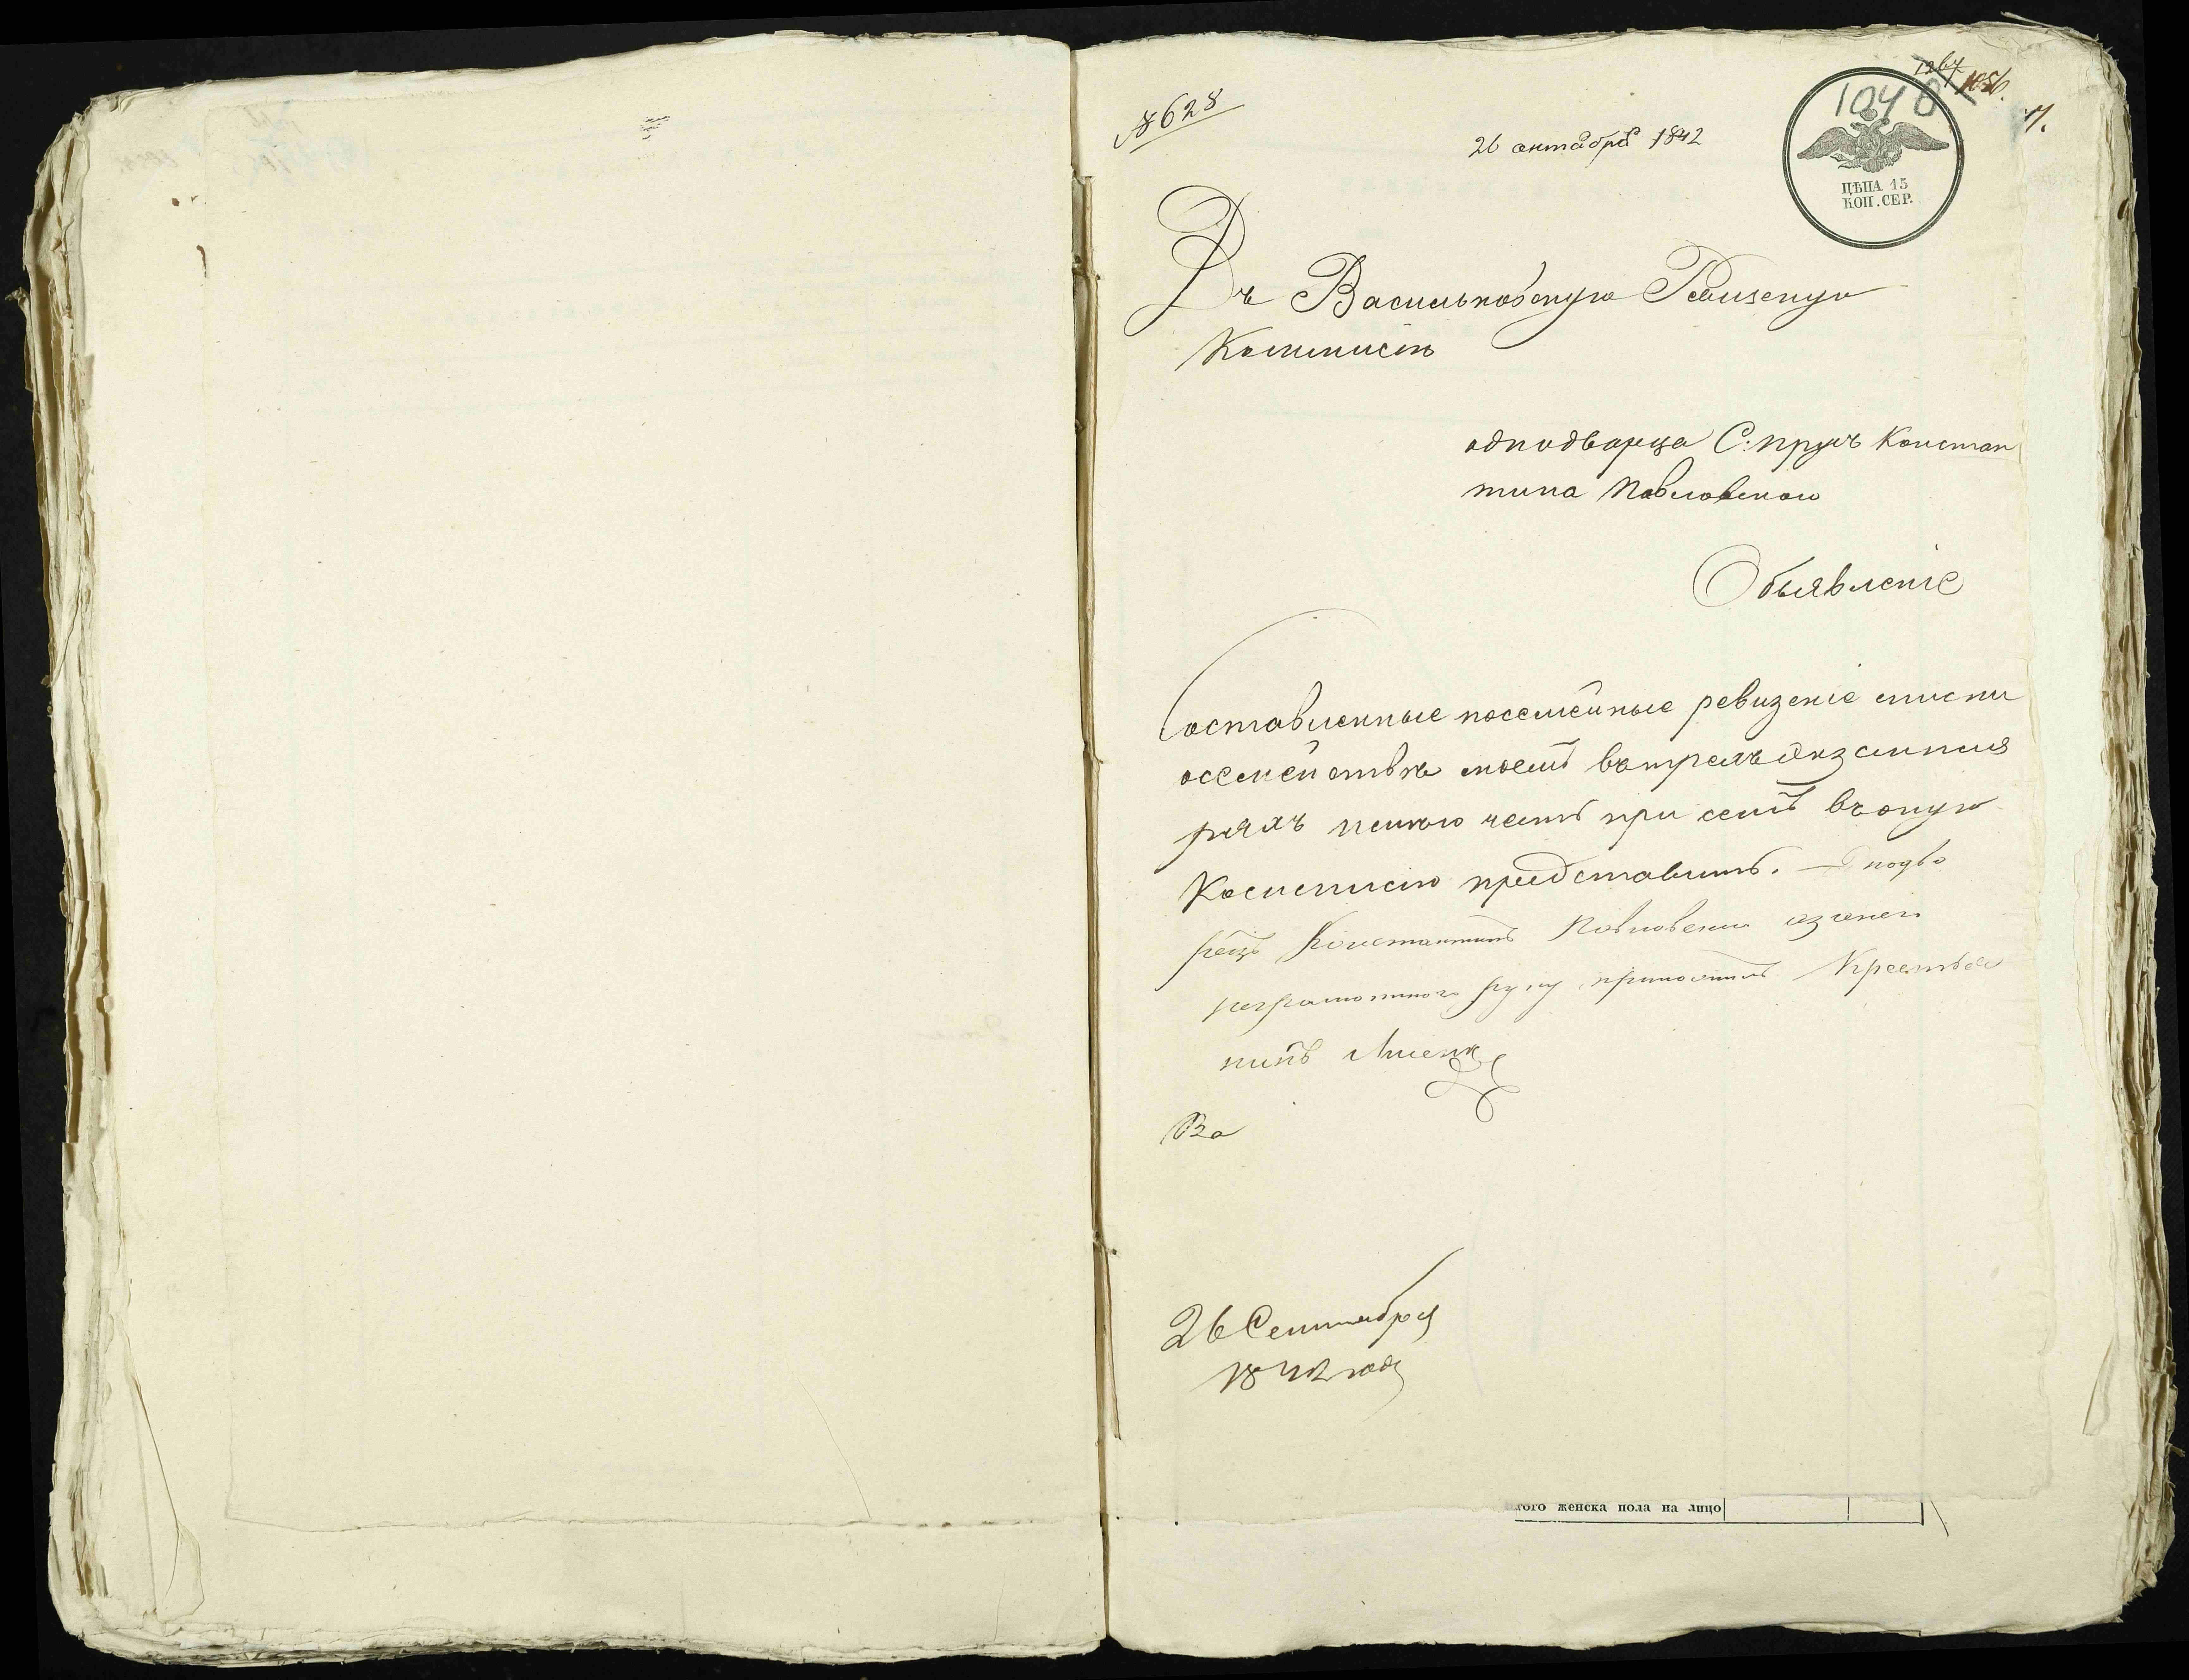 № 628
26 октабра 1842
1267
1056.
1040
ЦѢНА 15
КОП. СЕР.
Въ Васильковскую Ревизскую
Коммисію
однодворца С: Констан
тина Павловского
Объявленіе
Составленные посемейные ревизскіе списки
осемействѣ моемъ вътрехъ экземпля
рахъ имѣю честь при семъ въоную
Коммисію представить. — Однодво
рецъ Константинъ Павловскій азанего
неграмотного руку приложилъ Крестья
нинъ
26 Сентября
1842 года
женска пола на лицо